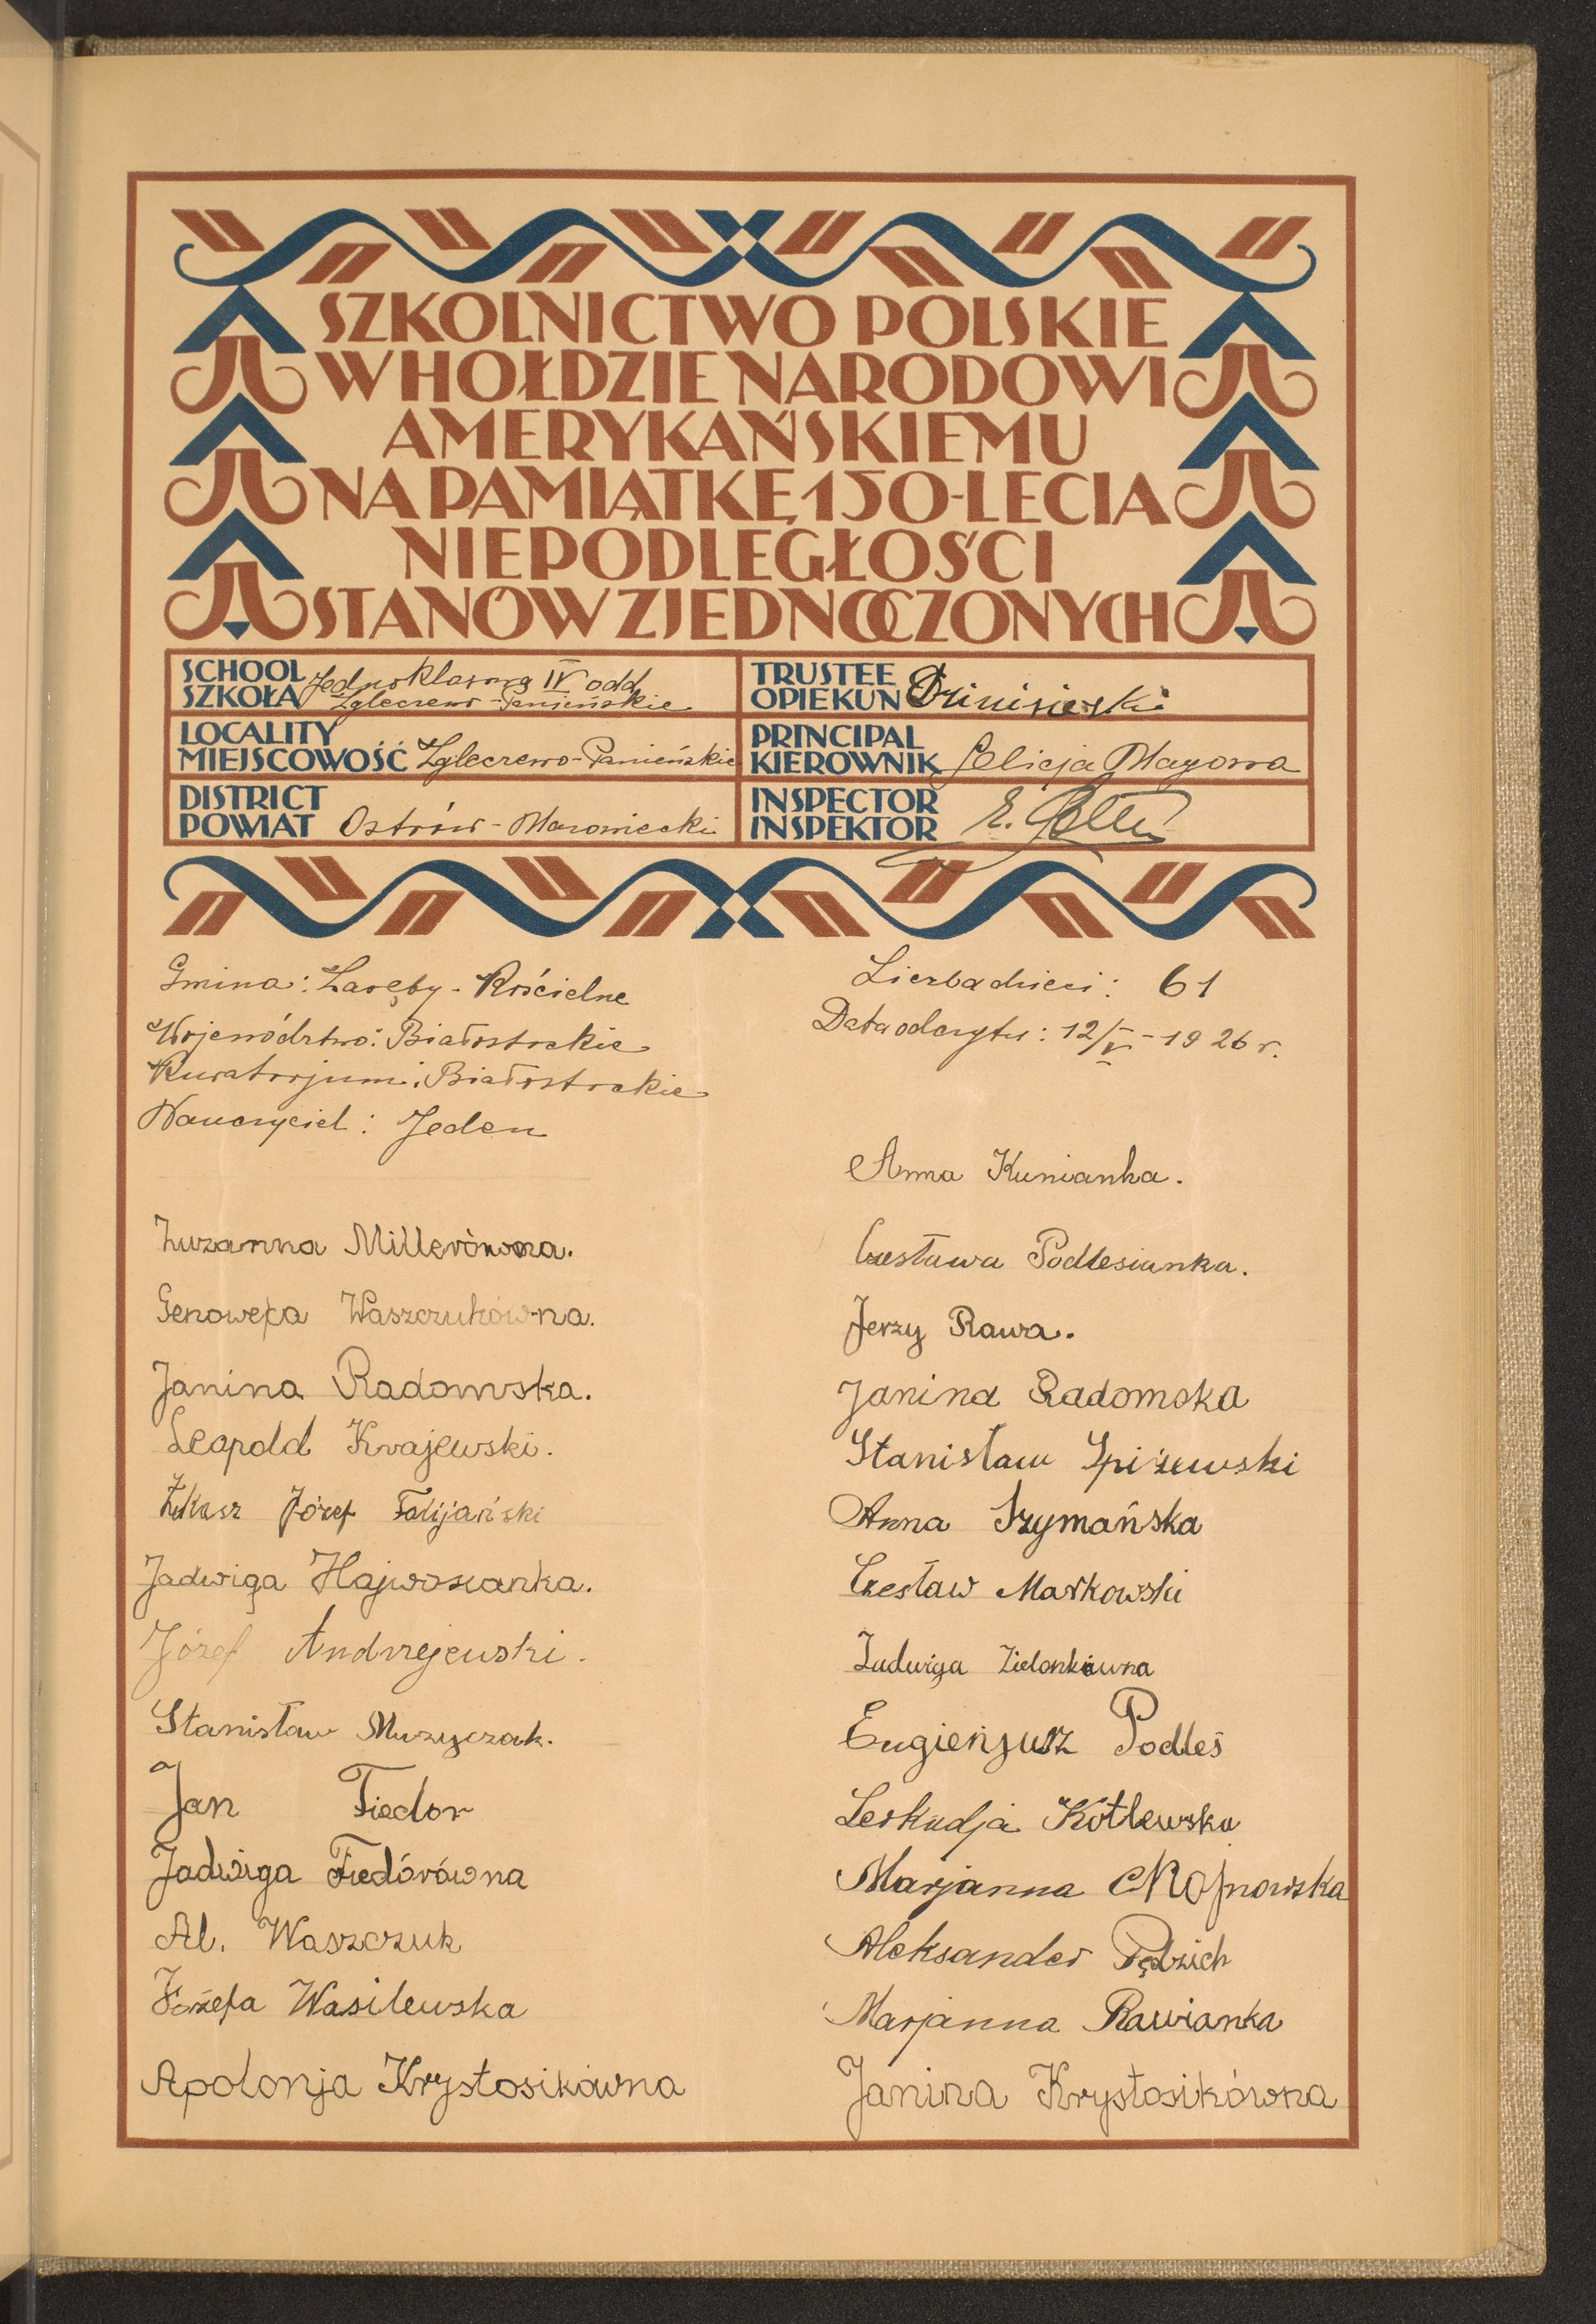 SZKOLNICTWO POLSKIE
W HOŁDZIE NARODOWI
AMERYKAŃSKIEMU
NA PAMIĄTKĘ 150-LECIA
NIEPODLEGŁOŚCI
STANÓW ZJEDNOCZONYCH
SCHOOL
SZKOŁA Jednoklasowa IV odd
Zgleczewo-Panieńskie
TRUSTEE
OPIEKUN
LOCALITY
MIEJSCOWOŚĆ Zgleczewo-Panieńskie
PRINCIPAL
KIEROWNIK Felicja Magowa
DISTRICT
POWIAT Ostrów-Mazowiecki
INSPECTOR
INSPEKTOR E.
Gmina: Zaręby-Kościelne
Województwo: Białostockie
Kuratorjum: Białostockie
Nauczyciel: Jeden
Liczba dzieci: 61
Data odczytu: 12/V-1926 r.
Zuzanna Millerówna.
Genowefa Waszczukówna.
Janina Radomska.
Leopold Krajewski.
Łukasz Józef
Jadwiga
Józef Andrzejewski.
Stanisław Muzyczak.
Jan Fiedor
Jadwiga Fiedórówna
Al. Waszczuk
Józefa Wasilewska
Apolonja Krystosikówna
Anna Kunianka.
Czesława Podlesianka.
Jerzy Rawa.
Janina Radomska
Stanisław Spiżewski
Anna Szymańska
Czesław Markowski
Jadwiga Zielonkówna
Eugienjusz Podleś
Leokadja Kotlewska
Marjanna Rojnowska
Aleksander Pędzich
Marjanna Rawianka
Janina Krystosikówna